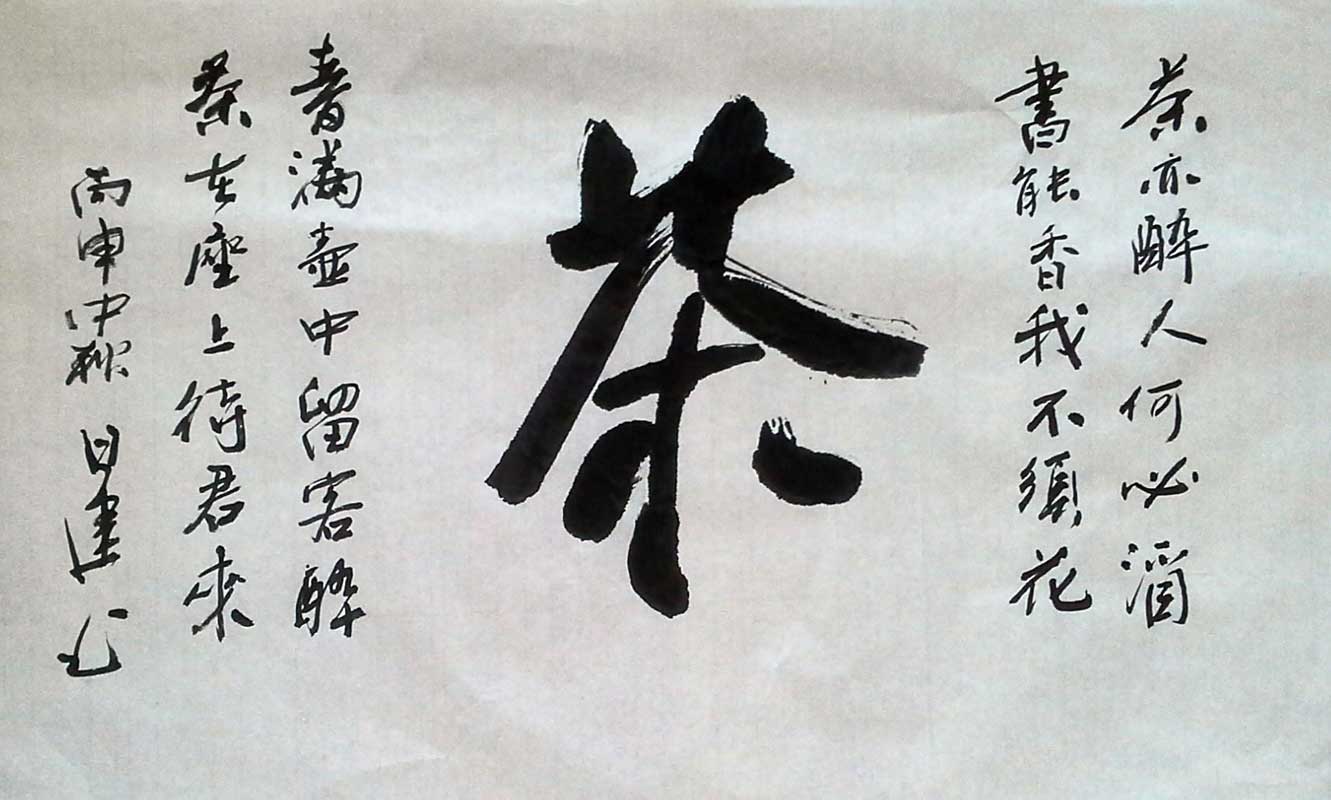 茶亦醉人何必酒
書能香我不須花
茶
春滿壺中留客醉
茶在座上待君來
丙申中秋 日建